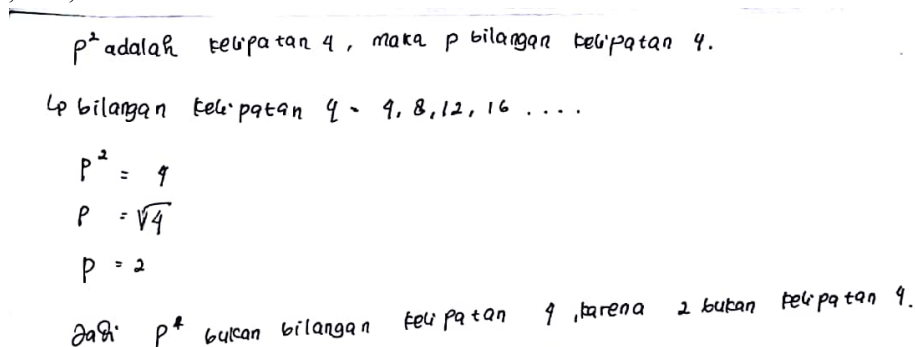 p² adalah kelipatan 4, maka p bilangan kelipatan 4.
↳ bilangan kelipatan 4 = 4, 8, 12, 16 ....
p² = 4
p = √4
p = 2
Jadi p² bukan bilangan kelipatan 4, karena 2 bukan kelipatan 4.